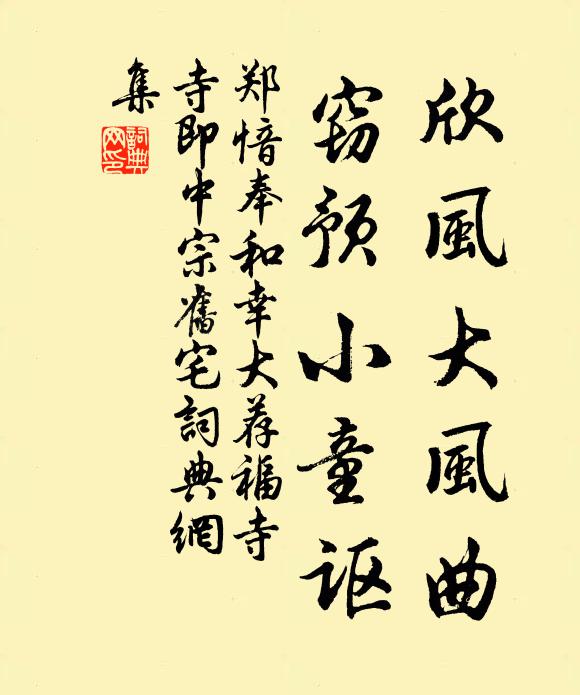 欣風大風曲
窃预小童讴
郑愔奉和幸大荐福寺
寺即中宗舊宅詞典網
集
詞典網印